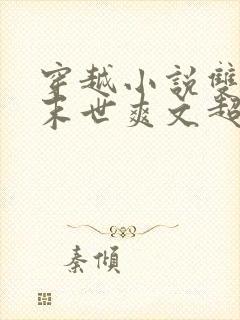 穿越小説雙
末世爽文超
秦傾